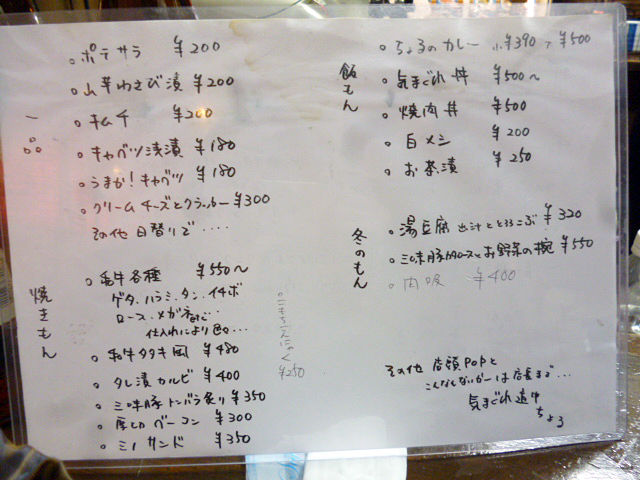 一品
。ポテサラ ¥200
。山芋わさび漬 ¥200
。キムチ ¥200
。キャベツ浅漬 ¥180
。うまか!キャベツ ¥180
。クリームチーズとクラッカー ¥300
その他 日替りで・・・・
焼きもん
。和牛各種 ¥550〜
ゲタ、ハラミ、タン、イチボ
ロース、メガネなど…
仕入れにより色々…
。和牛タタキ風 ¥480
。タレ漬カルビ ¥400
。三味豚トンバラ炙り ¥350
。厚切ベーコン ¥300
。ミノサンド ¥350
¥250
飯もん
。ちょろのカレー 小¥390 大¥500
。気まぐれ丼 ¥500〜
。焼肉丼 ¥500
。白メシ ¥200
。お茶漬 ¥250
冬のもん
。湯豆腐 出汁ととろろこぶ ¥320
。三味豚肩ロースとお野菜の椀 ¥550
。肉吸 ¥400
その他 店頭POPと
こんなんないかーは店長まで…
気まぐれ連中
ちょろ